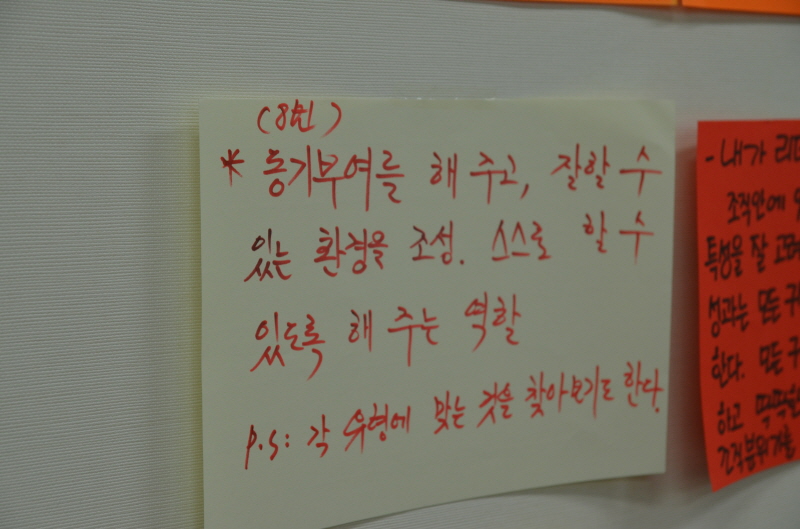 (8번)
* 동기부여를 해 주고, 잘할 수
있는 환경을 조성. 스스로 할 수
있도록 해 주는 역할
p.s: 각 유형에 맞는 것을 찾아보기도 한다.
- 내가 리더
조직안에
특성을 잘
성과는 모든 구
한다. 모든 구
하고 딱딱한